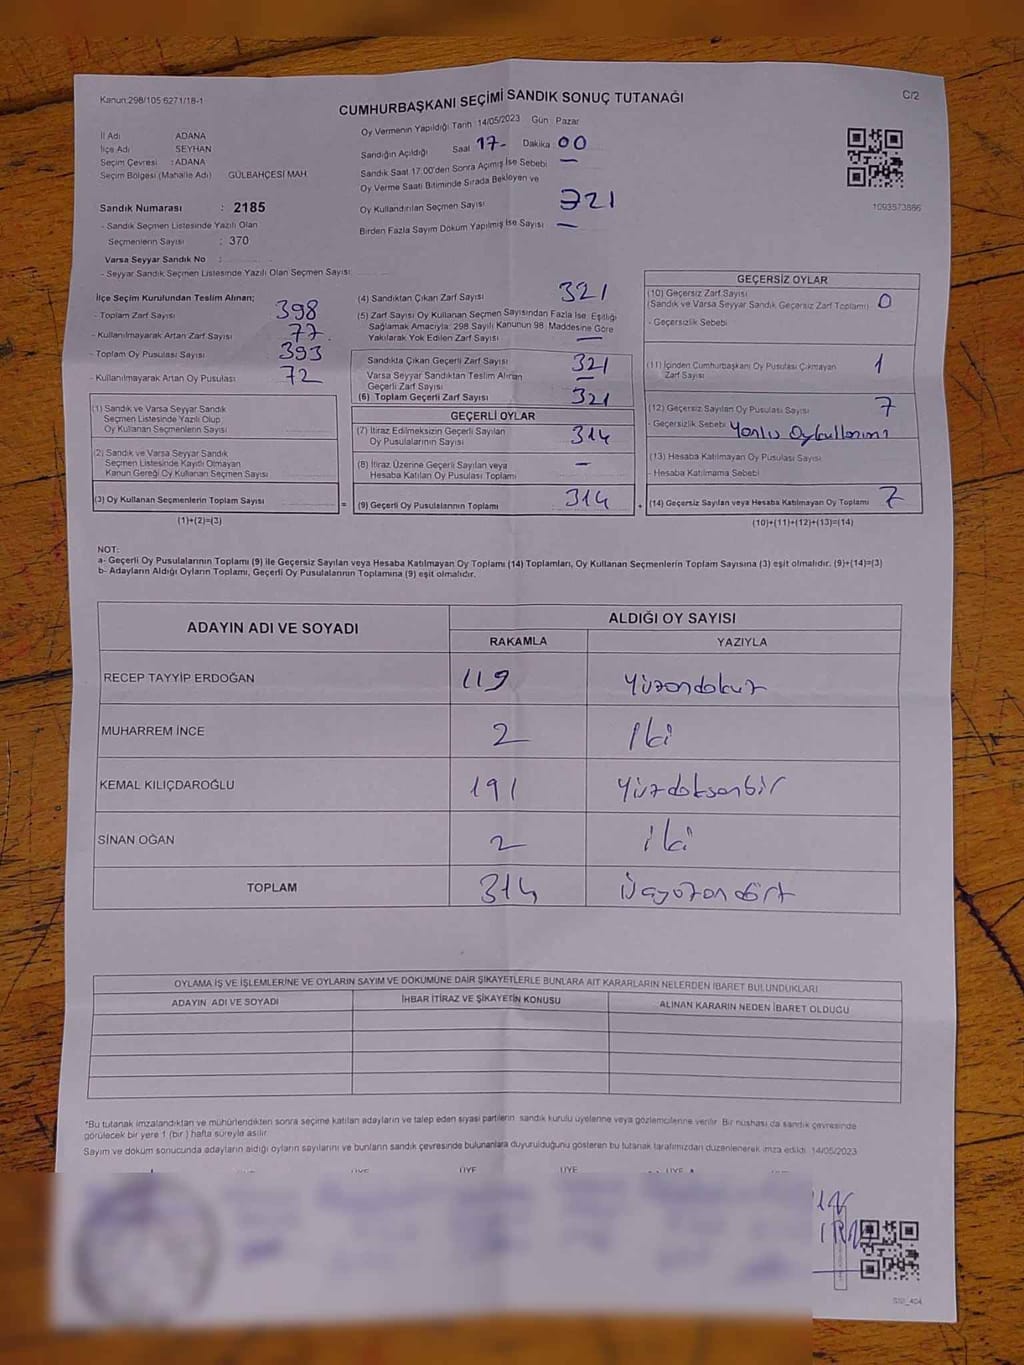 Kanun:298/105 6271/18-1
CUMHURBAŞKANI SEÇİMİ SANDIK SONUÇ TUTANAĞI
C/2
İl Adı ADANA
İlçe Adı SEYHAN
Seçim Çevresi : ADANA
Seçim Bölgesi (Mahalle Adı) GÜLBAHÇESİ MAH.
Sandık Numarası : 2185
- Sandık Seçmen Listesinde Yazılı Olan
Seçmenlerin Sayısı : 370
Varsa Seyyar Sandık No :
- Seyyar Sandık Seçmen Listesinde Yazılı Olan Seçmen Sayısı:
Oy Vermenin Yapıldığı Tarih 14/05/2023 Gün : Pazar
Sandığın Açıldığı Saat 17- Dakika : 00
Sandık Saat 17:00'den Sonra Açımış İse Sebebi : —
Oy Verme Saati Bitiminde Sırada Bekleyen ve
Oy Kullandırılan Seçmen Sayısı 321
Birden Fazla Sayım Döküm Yapılmış İse Sayısı —
1093573886
İlçe Seçim Kurulundan Teslim Alınan;
- Toplam Zarf Sayısı 398
- Kullanılmayarak Artan Zarf Sayısı 77
- Toplam Oy Pusulası Sayısı 393
- Kullanılmayarak Artan Oy Pusulası 72
(1) Sandık ve Varsa Seyyar Sandık
Seçmen Listesinde Yazılı Olup
Oy Kullanan Seçmenlerin Sayısı
(2) Sandık ve Varsa Seyyar Sandık
Seçmen Listesinde Kayıtlı Olmayan
Kanun Gereği Oy Kullanan Seçmen Sayısı
(3) Oy Kullanan Seçmenlerin Toplam Sayısı =
(1)+(2)=(3)
(4) Sandıktan Çıkan Zarf Sayısı 321
(5) Zarf Sayısı Oy Kullanan Seçmen Sayısından Fazla İse, Eşitliği
Sağlamak Amacıyla; 298 Sayılı Kanunun 98. Maddesine Göre
Yakılarak Yok Edilen Zarf Sayısı —
Sandıkta Çıkan Geçerli Zarf Sayısı 321
Varsa Seyyar Sandıktan Teslim Alınan
Geçerli Zarf Sayısı —
(6) Toplam Geçerli Zarf Sayısı 321
GEÇERLİ OYLAR
(7) İtiraz Edilmeksizin Geçerli Sayılan
Oy Pusulalarının Sayısı 314
(8) İtiraz Üzerine Geçerli Sayılan veya
Hesaba Katılan Oy Pusulası Toplamı —
(9) Geçerli Oy Pusulalarının Toplamı 314 +
GEÇERSİZ OYLAR
(10) Geçersiz Zarf Sayısı
(Sandık ve Varsa Seyyar Sandık Geçersiz Zarf Toplamı) 0
- Geçersizlik Sebebi
(11) İçinden Cumhurbaşkanı Oy Pusulası Çıkmayan
Zarf Sayısı 1
(12) Geçersiz Sayılan Oy Pusulası Sayısı 7
- Geçersizlik Sebebi Yanlış Oy kullanımı
(13) Hesaba Katılmayan Oy Pusulası Sayısı
- Hesaba Katılmama Sebebi
(14) Geçersiz Sayılan veya Hesaba Katılmayan Oy Toplamı 7
(10)+(11)+(12)+(13)=(14)
NOT:
a- Geçerli Oy Pusulalarının Toplamı (9) ile Geçersiz Sayılan veya Hesaba Katılmayan Oy Toplamı (14) Toplamları, Oy Kullanan Seçmenlerin Toplam Sayısına (3) eşit olmalıdır. (9)+(14)=(3)
b- Adayların Aldığı Oyların Toplamı, Geçerli Oy Pusulalarının Toplamına (9) eşit olmalıdır.
ADAYIN ADI VE SOYADI
ALDIĞI OY SAYISI
RAKAMLA YAZIYLA
RECEP TAYYİP ERDOĞAN 119 Yüzondokuz
MUHARREM İNCE 2 İki
KEMAL KILIÇDAROĞLU 191 Yüzdoksanbir
SİNAN OĞAN 2 iki
TOPLAM 314 üçyüzondört
OYLAMA İŞ VE İŞLEMLERİNE VE OYLARIN SAYIM VE DÖKÜMÜNE DAİR ŞİKAYETLERLE BUNLARA AİT KARARLARIN NELERDEN İBARET BULUNDUKLARI
ADAYIN ADI VE SOYADI İHBAR İTİRAZ VE ŞİKAYETİN KONUSU ALINAN KARARIN NEDEN İBARET OLDUĞU
*Bu tutanak imzalandıktan ve mühürlendikten sonra seçime katılan adayların ve talep eden siyasi partilerin sandık kurulu üyelerine veya gözlemcilerine verilir. Bir nüshası da sandık çevresinde
görülecek bir yere 1 (bir) hafta süreyle asılır.
Sayım ve döküm sonucunda adayların aldığı oyların sayılarını ve bunların sandık çevresinde bulunanlara duyurulduğunu gösteren bu tutanak tarafımızdan düzenlenerek imza edildi. 14/05/2023
ÜYE ÜYE ÜYE ÜYE